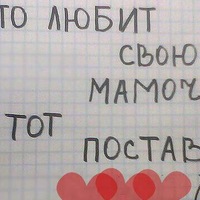 ТО ЛЮБИТ
СВОЮ
МАМОЧ
ТОТ
ПОСТАВ